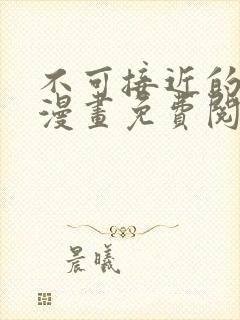 不可接近的
漫畫免費閱
晨曦